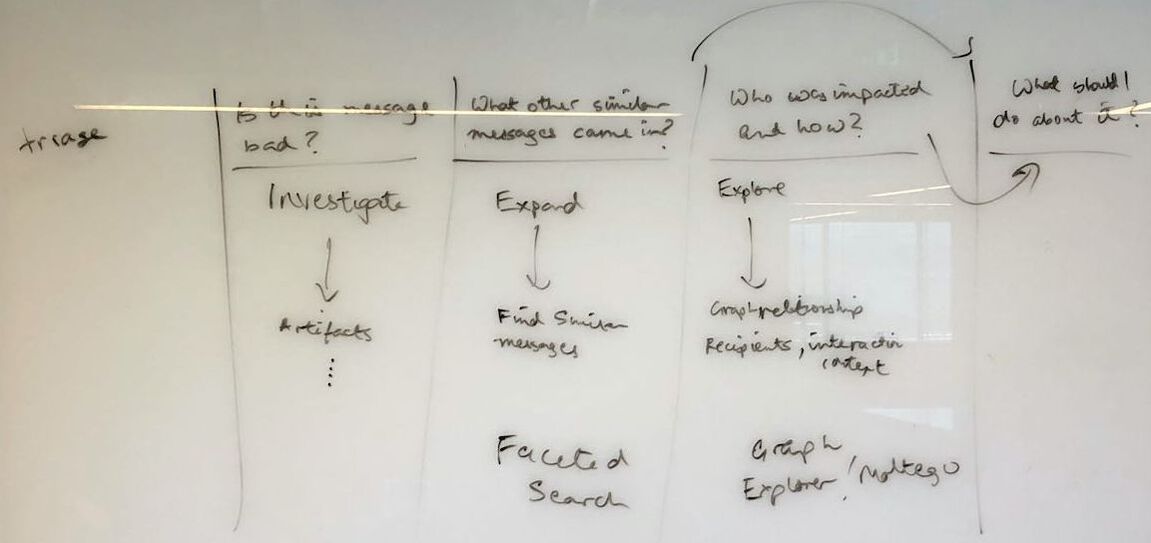 triage
Is this message
bad?
Investigate
Artifacts
What other similar
messages came in?
Expand
Find Similar
messages
Faceted
Search
Who was impacted
and how?
Explore
Graph relationship
Recipients, interaction
context
Graph
Explorer / Maltego
What should I
do about it?